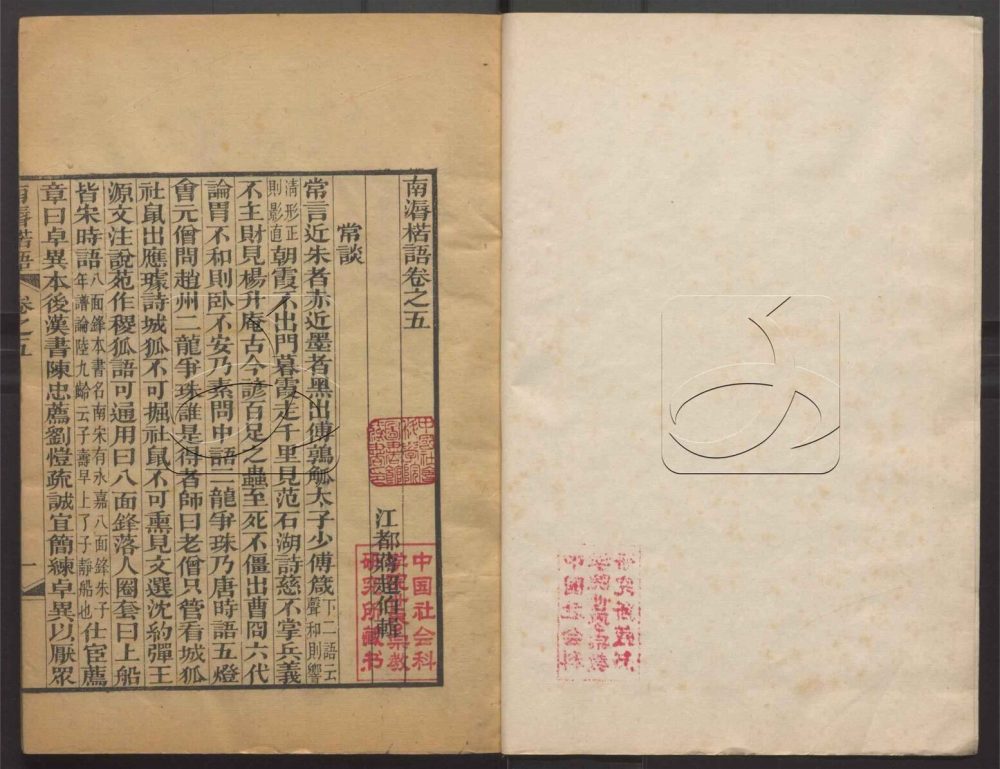 南漘楛語卷之五
江都蔣超伯輯
常談
常言近朱者赤近墨者黑出傅鶉觚太子少傅箴下二語云聲和則響
清形正則影直朝霞不出門暮霞走千里見范石湖詩慈不掌兵義
不主財見楊升庵古今諺百足之蟲至死不僵出曹冏六代
論胃不和則卧不安乃素問中語二龍爭珠乃唐時語五燈
會元僧問趙州二龍爭珠誰是得者師曰老僧只管看城狐
社鼠出應璩詩城狐不可掘社鼠不可熏見文選沈約彈王
源文注說苑作稷狐語可通用曰八面鋒落人圈套曰上船
皆宋時語八面鋒本書名南宋有永嘉八面鋒朱子年譜論陸九齡云子壽早上了子靜船也仕宦薦
章曰卓異本後漢書陳忠薦劉愷疏誠宜簡練卓異以厭眾
南漘楛語 卷之五 一
中国社会科
学院宗教
研究所藏书